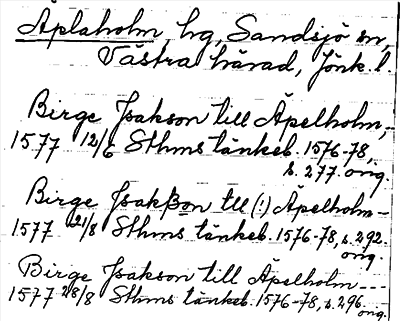 Äplaholm, hg, Sandsjö sn,
Västra härad, Jönk. l.
Birge Jsakson till Äpelholm,-
1577 12/6 Sthms tänkeb. 1576-78,
s. 277 orig.
Birge Jsakßon tell (!) Äpelholm-
1577 21/8 Sthms tänkeb. 1576-78, s. 292.
orig.
Birge Jsakson till Äpelholm---
1577 28/8 Sthms tänkeb. 1576-78, s. 296.
orig.